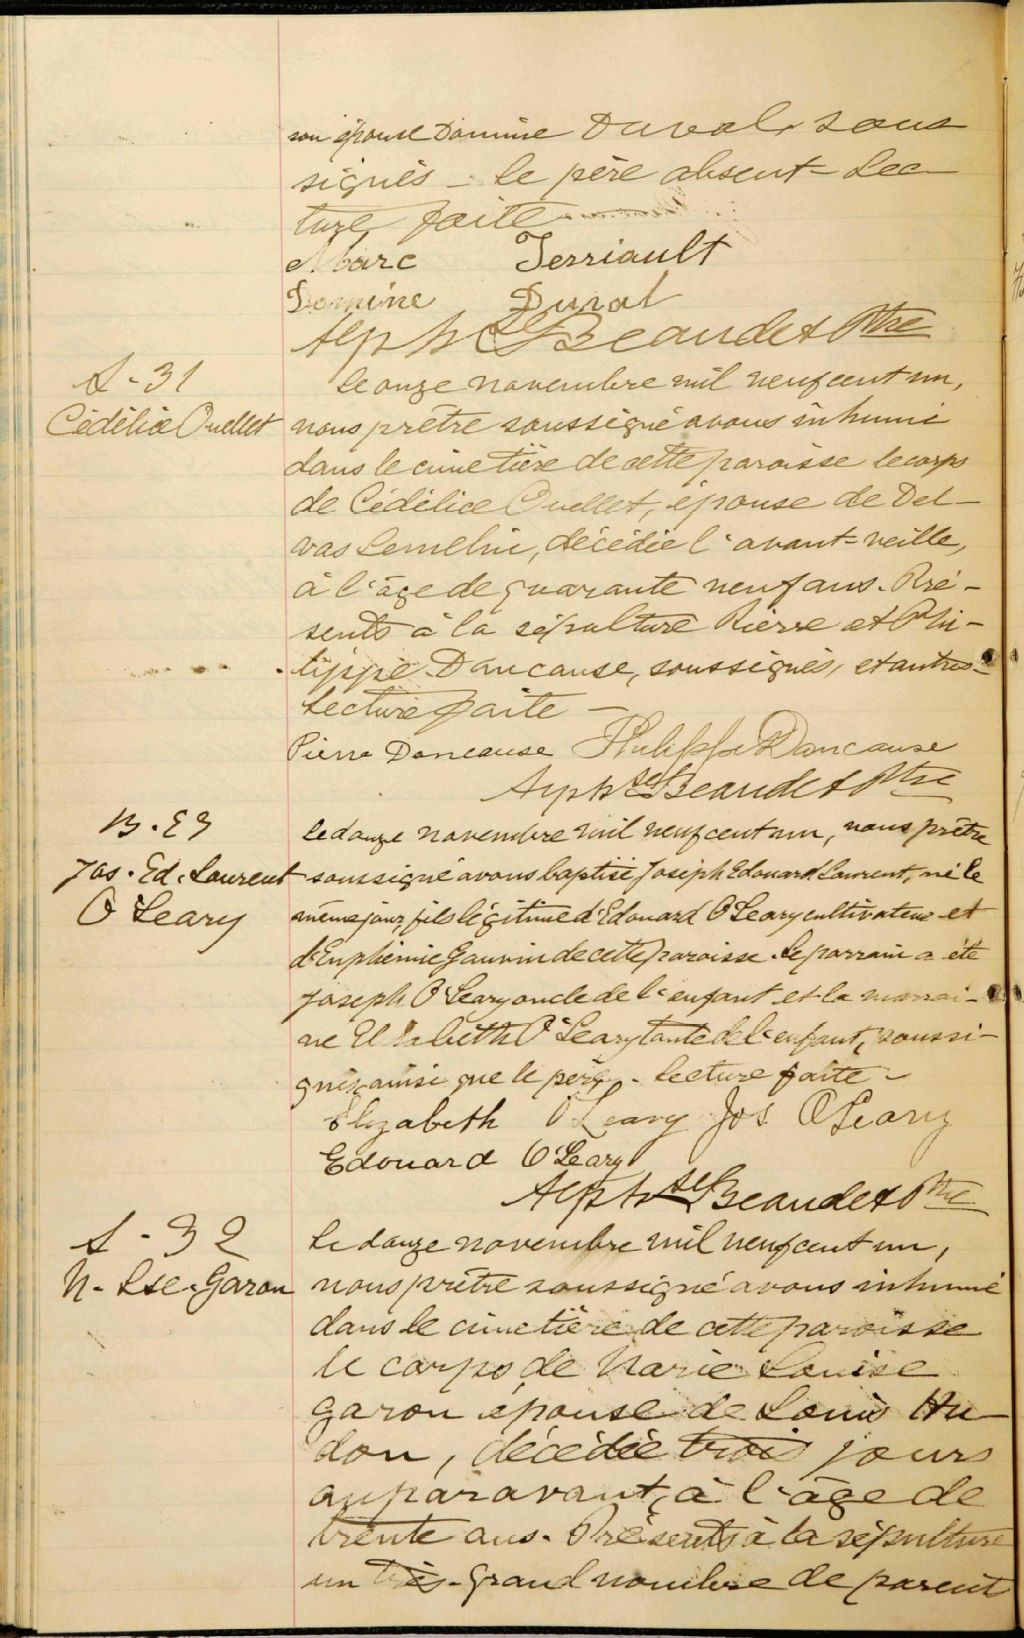 son épouse Domine Duval, sous
signés - le père absent - Lec-
ture faite
Marc Terriault
Domine Duval
Alphse Beaudet Ptre
S - 31
Cédélice Ouellet
Le onze novembre mil neuf cent un,
nous prêtre soussigné avons inhumé
dans le cimetière de cette paroisse le corps
de Cédélice Ouellet, épouse de Del-
vas Lemelin, décédée l'avant-veille,
à l'âge de quarante neuf ans. Pré-
sents à la sépulture Pierre et Phi-
lippe Dancause, soussignés, et autres -
Lecture faite -
Pierre Dancause Philippe Dancause
Alphse Beaudet Ptre
B. 53
Jos. Ed. Laurent
O'Leary
Le douze novembre mil neuf cent un, nous prêtre
soussigné avons baptisé Joseph Edouard Laurent, né le
même jour, fils légitime d'Edouard O'Leary cultivateur et
d'Euphémie Gauvin de cette paroisse. Le parrain a été
Joseph O'Leary oncle de l'enfant et la marrai-
ne Elisabeth O'Leary tante de l'enfant, soussi-
gnés ainsi que le père. Lecture faite -
Elizabeth O'Leary Jos O'Leary
Edouard O'Leary
Alphse Beaudet Ptre
S - 32
M. Lse. Garon
Le douze novembre mil neuf cent un,
nous prêtre soussigné avons inhumé
dans le cimetière de cette paroisse
le corps de Marie Louise
Garon épouse de Louis Hu-
don, décédée trois jours
auparavant, à l'âge de
trente ans. Présents à la sépulture
un très-grand nombre de parents